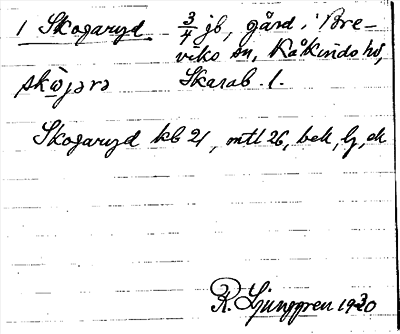 1 Skogaryd 3/4 jb, gård i Bre-
viks sn, Kåkinds hd,
Skarab. l.
skòjarə
Skogaryd kb 21, mtl 26, bek, lj, ek
R. Ljunggren 1920